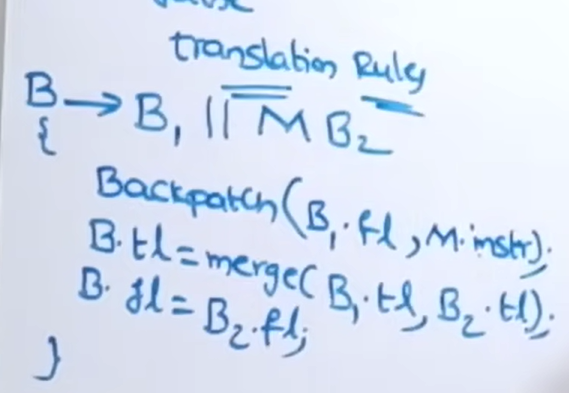 translation Rules
B → B₁ || M B₂
{
Backpatch(B₁.fl, M.instr);
B.tl = merge(B₁.tl, B₂.tl);
B.fl = B₂.fl;
}